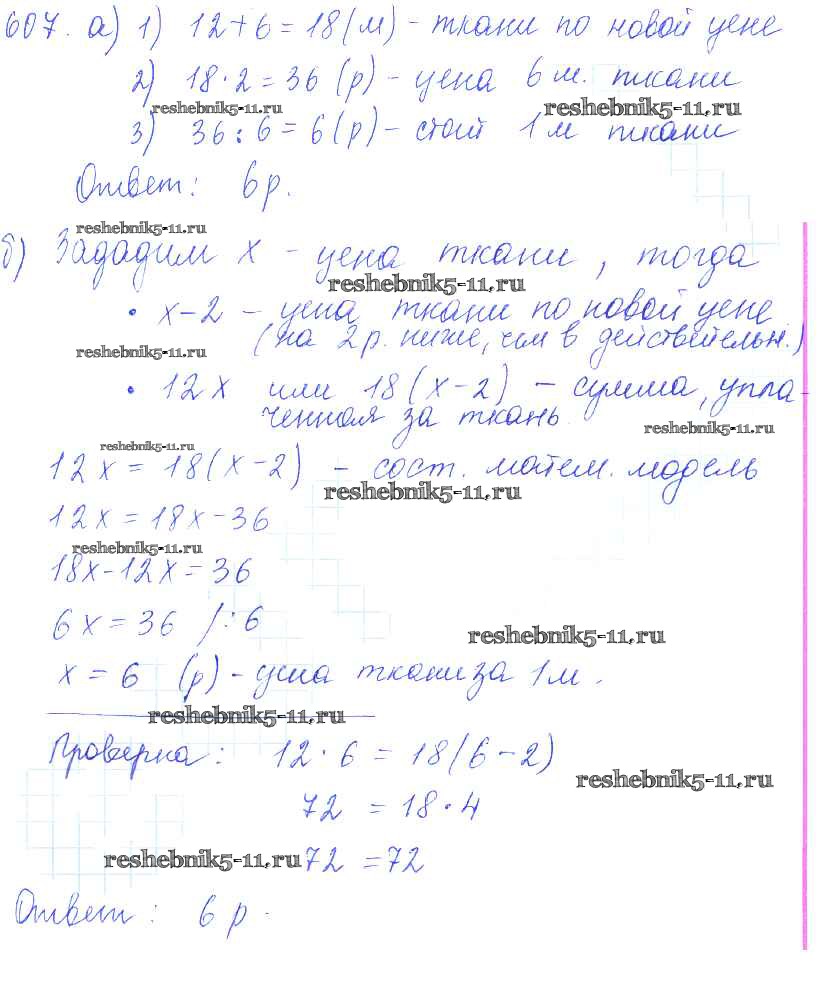 607. а) 1) 12+6=18(м) - ткани по новой цене
2) 18·2=36 (р) - цена 6 м. ткани
reshebnik5-11.ru reshebnik5-11.ru
3) 36:6=6(р) - стоит 1м ткани
Ответ: 6р.
reshebnik5-11.ru
б) Зададим х - цена ткани, тогда
reshebnik5-11.ru
• х-2 - цена ткани по новой цене
(на 2р. ниже, чем в действительн.)
reshebnik5-11.ru
• 12х или 18(х-2) - сумма, упла-
ченная за ткань
reshebnik5-11.ru
reshebnik5-11.ru
12х=18(х-2) - сост. матем. модель
reshebnik5-11.ru
12х=18х-36
reshebnik5-11.ru
18х-12х=36
6х=36 /:6
reshebnik5-11.ru
х=6 (р) - цена ткани за 1м.
reshebnik5-11.ru
Проверка: 12·6=18(6-2)
reshebnik5-11.ru
72 =18·4
reshebnik5-11.ru 72 =72
Ответ: 6р.